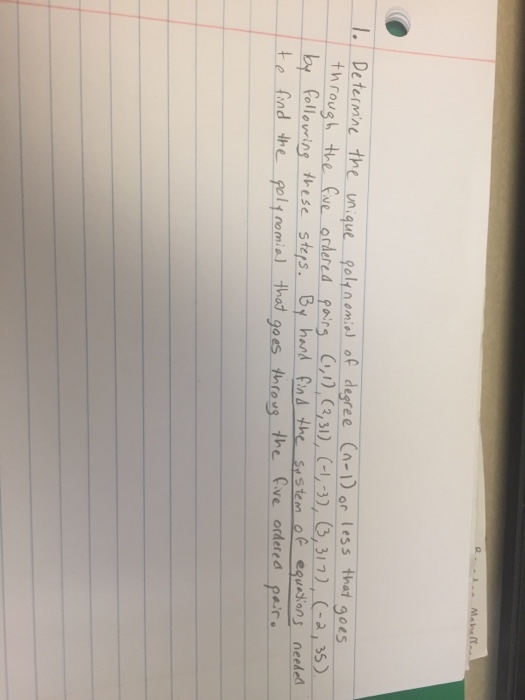 1. Determine the unique polynomial of degree (n-1) or less that goes
through the five ordered pairs (1,1), (2,31), (-1,-3), (3,317), (-2,35)
by following these steps. By hand find the system of equations needed
to find the polynomial that goes throug the five ordered pair.